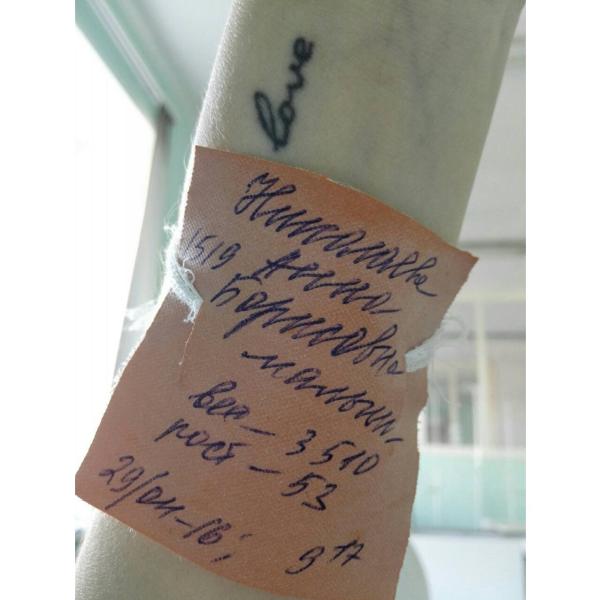 love
Николаева
1519 Анна
Борисовна
мальчик
вес - 3510
рост - 53
29/ -16; 9 17